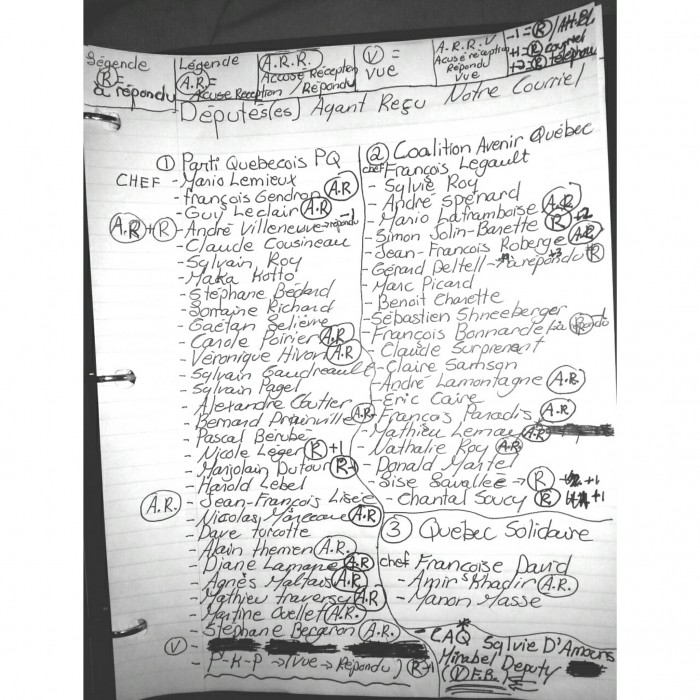 Légende
(R)=
a répondu
Légende
(A.R.)=
Accuse Réception
A.R.R.
Accusé Réception
/ Répondu
(V) =
vue
A.R.R.V
Accusé réception
Répondu
Vue
-1= (R)
+1= (R) courriel
+2= (R) téléphone
Députés(es) Ayant Reçu Notre Courriel
(1) Parti Québecois PQ
CHEF - Mario Lemieux
- françois Gendron (A.R)
- Guy Leclair (A.R)
(A.R)+(R) - André Villeneuve → répondu -1
- Claude Cousineau
- Sylvain Roy
- Maka Kotto
- Stéphane Bédard
- Lorraine Richard
- Gaëtan Lelièvre
- Carole Poirier (A.R)
- Véronique Hivon (A.R)
- Sylvain Gaudreault
- Sylvain Pagel
- Alexandre Cloutier
- Bernard Drainville (A.R)
- Pascal Bérubé
- Nicole Léger (R) +1
- Marjolain Dufour (R)-1
- Harold Lebel
(A.R.) - Jean-François Lisée
- Nicolas Marceau (A.R)
- Dave Turcotte
- Alain Therrien (A.R.)
- Diane Lamarre (A.R)
- Agnès Maltais (A.R)
- Mathieu Traversy (A.R)
- Martine Ouellet (A.R.)
- Stéphane Bergeron (A.R.)
(V) -
- P-K-P → (Vue → Répondu) (R)-1
(2) Coalition Avenir Québec
chef François Legault
- Sylvie Roy
- André Spénard
- Mario Laframboise (A.R)
- Simon Jolin-Barette (R) +2
- Jean-François Roberge (A.R)
- Gérard Deltell → a répondu (R) +3
- Marc Picard
- Benoit Charette
- Sébastien Shneeberger
- François Bonnardel
- Claude Surprenant
- Claire Samson
- André Lamontagne (A.R.)
- Eric Caire
- François Paradis (A.R.)
- Mathieu Lemay (A.R)
- Nathalie Roy (A.R)
- Donald Martel
- Lise Lavallée → (R) +1
- Chantal Soucy (R) +1
(3) Québec Solidaire
chef Françoise David
- Amir Khadir (A.R.)
- Manon Masse
- CAQ* Sylvie D'Amours
Mirabel Deputy
(V F.B.)